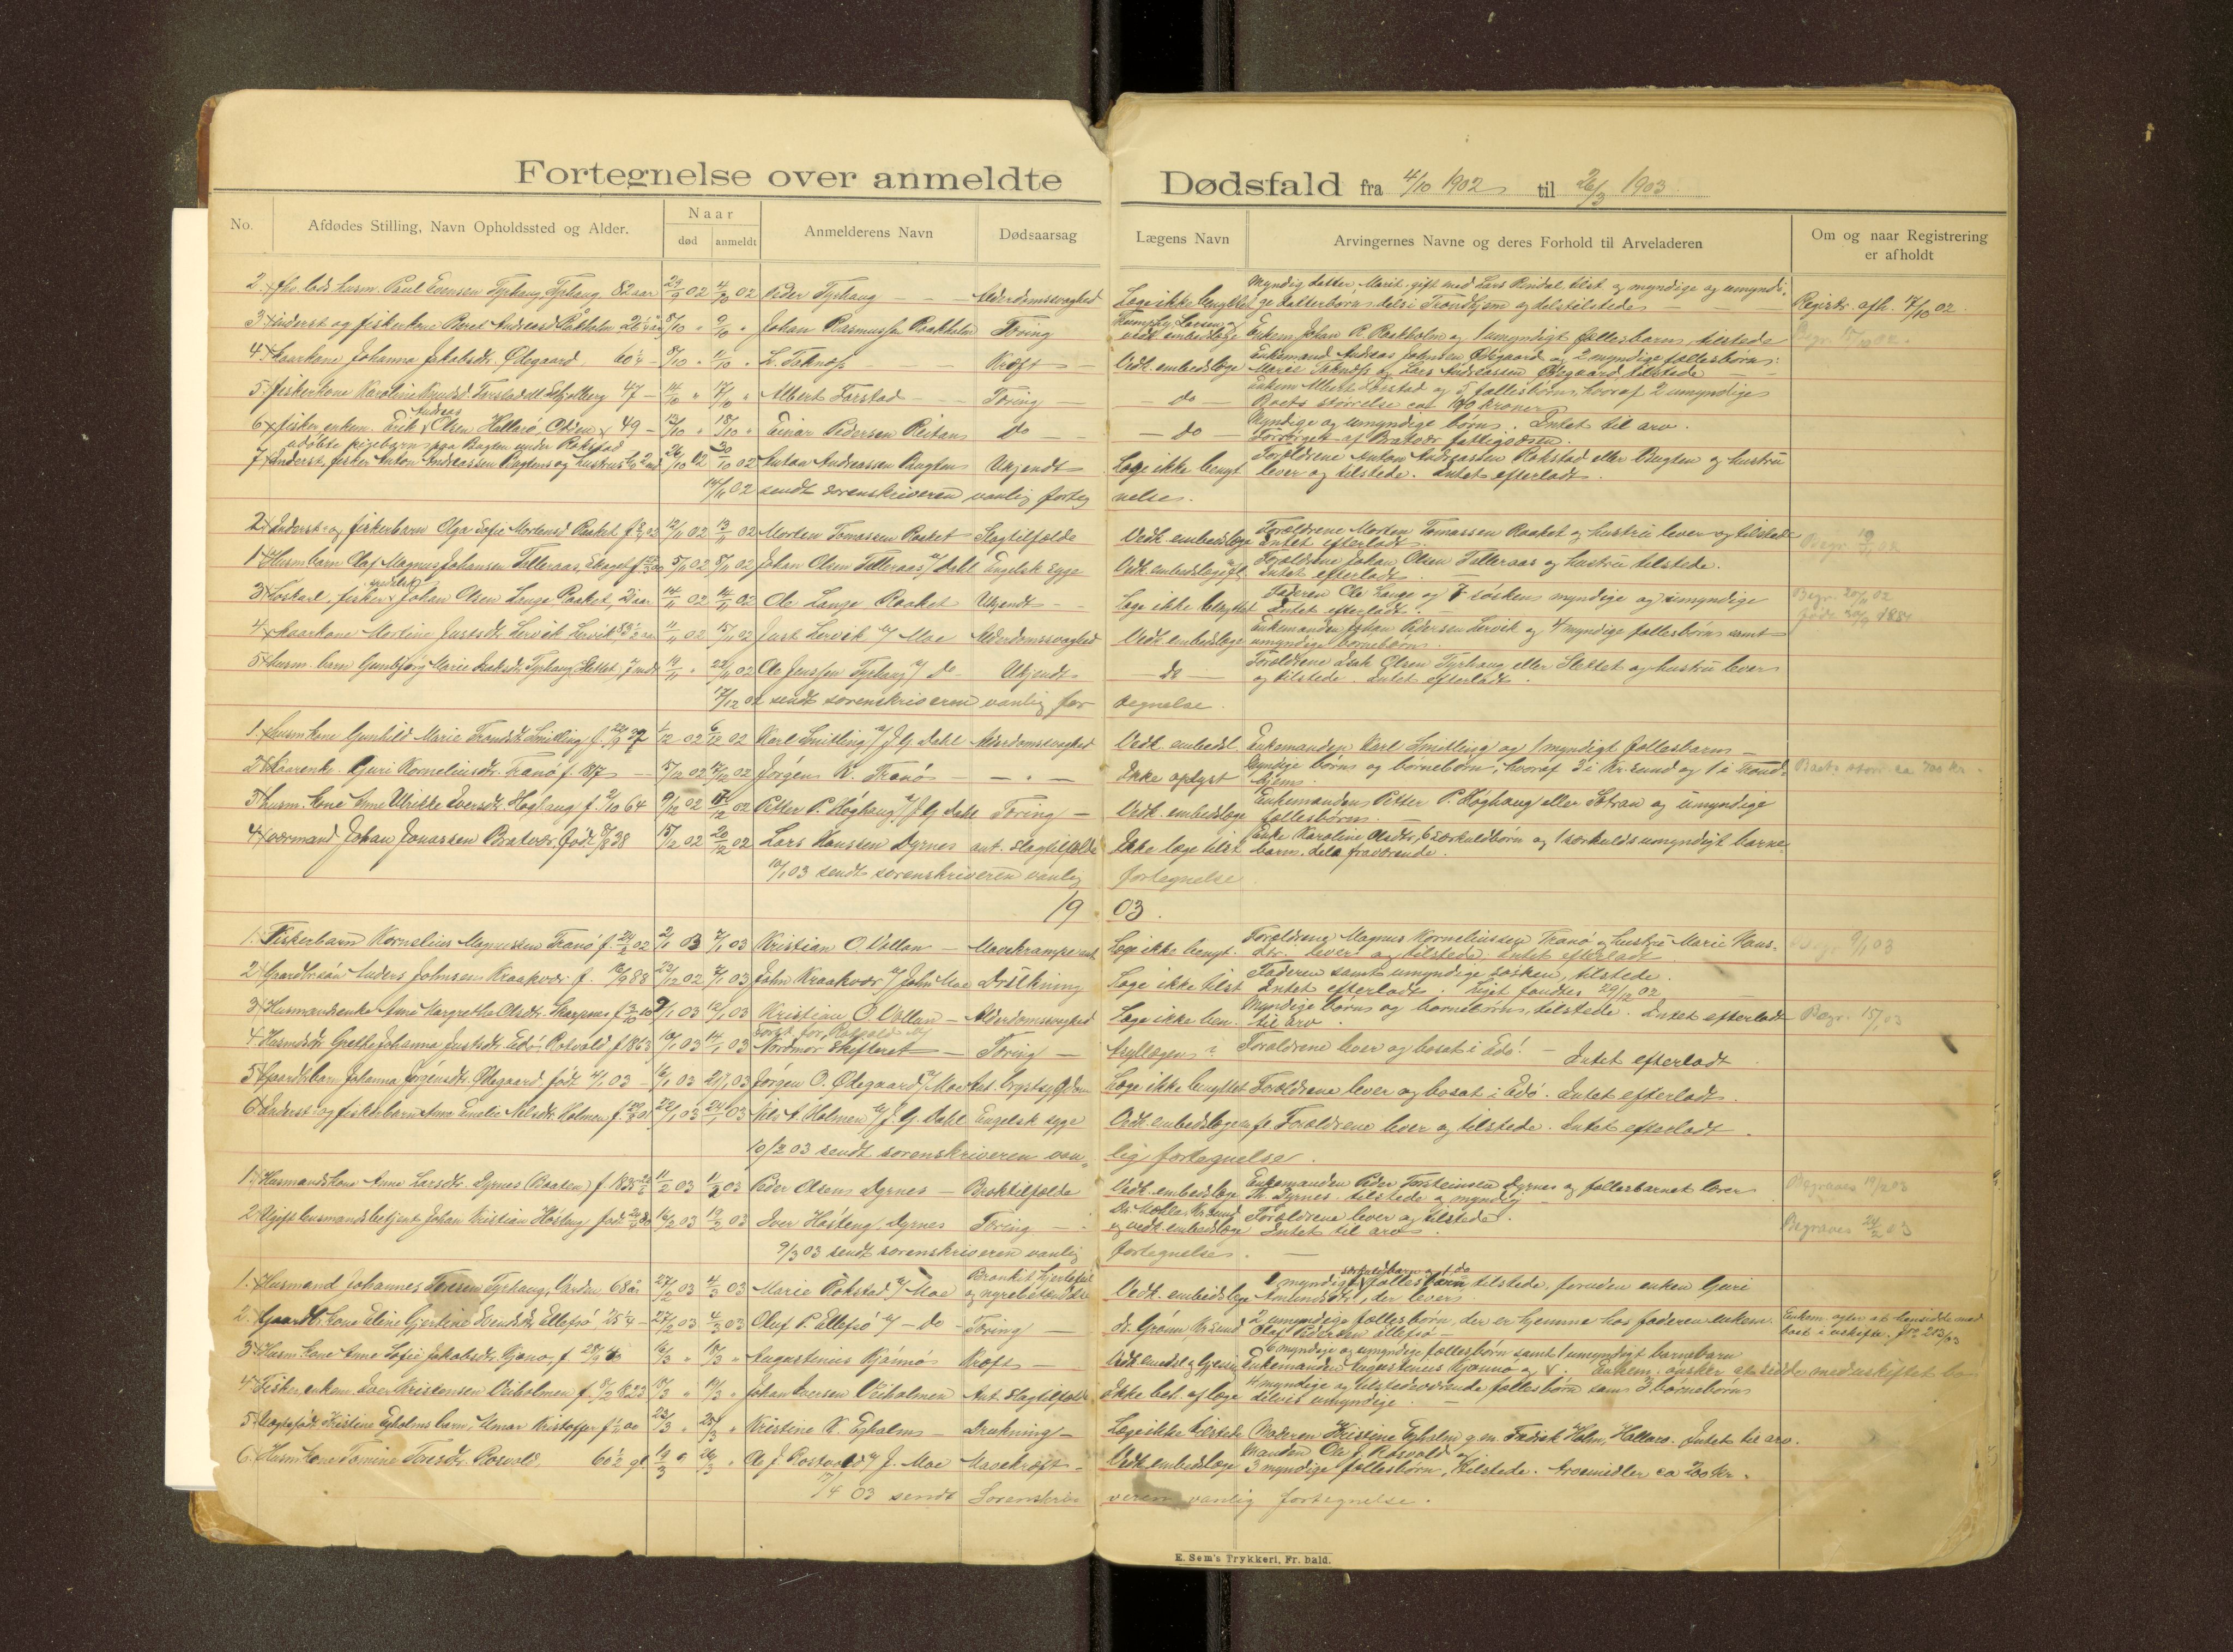 Fortegnelse over anmeldte Dødsfald fra 4/10 1902 til 26/3 1903
No. Afdødes Stilling, Navn Opholdssted og Alder. Naar død anmeldt Anmelderens Navn Dødsaarsag Lægens Navn Arvingernes Navne og deres Forhold til Arveladeren Om og naar Registrering er afholdt
2. husm. Paul Evensen Tyrhaug, 82 aar 29/9 02 4/10 02 Peder Tyrhaug Alderdomssvaghed Læge ikke benyttet Myndig datter, Marit gift med Lars Rindal tilst. og myndige og umyndige datterbørn dels i Trondhjem og dels tilstede Registr. afh. 17/10 02.
3 Inderst og fiskerkone Beret Andreasd. 8/10 " 9/10 " Johan Rasmussen Raakholm Tæring vedk. embedslæge Enkem. Johan R. Raakholm og 1 umyndigt fællesbarn, tilstede
4. Kaarkone Johanna Jakobsdtr. Ødegaard 60 8/10 " 11/10 " L. Taknæs Kræft Vedk. embedslæge Enkemand Andreas Johnsen Ødegaard og 2 myndige fællesbørn: Maret Taknæs og Lars Andreassen Ødegaard, tilstede
5. fiskerkone Karoline Knudsd. Forstad 47 14/10 " 17/10 " Albert Forstad Tæring do Enkem. Albert Forstad og 5 fællesbørn, hvoraf 2 umyndige Boets størrelse ca. kroner
6 fisker, enkem. Erik Andreas Olsen Hallarø, Odden 49 13/10 " 18/10 " Einar Pedersen Reitan Do do Myndige og umyndige børn. Intet til arv. Forsørget af Bratvær fattigvæsen.
udøbte pigebarn paa Bugten under Rokstad
7 Inderst, fisker Anton Andreassen Bugten og hustrus 26/10 02 30/10 02 Anton Andreassen Bugten Ukjendt Læge ikke benyt Forældrene Anton Andreassen Rokstad eller Bugten og hustru lever og tilstede. Intet efterladt.
14/11 02 sendt sorenskriveren vanlig forteg nelse.
2. Inderst og fiskerbarn Olga Sofie Mortensd. Raaket 12/11 02 13/11 02 Morten Tomassen Raaket Slagtilfælde Vedk. embedslæge Forældrene Morten Tomassen Raaket og hustru lever og tilstede Intet efterladt
1 Husm. barn Olaf Magnus Johansen Telleraas, 5/11 02 8/11 02 Johan Olsen Telleraas v/ Dahl Engelsk syge Vedk. embedslæge Forældrene Johan Olsen Telleraas og hustru tilstede. Intet efterladt.
3 Løskarl, fisker Johan Olsen Lange, Raaket, 14/11 02 14/11 02 Ole Lange Raaket Ukjendt Læge ikke benyttet Faderen Ole Lange og 7 søsken myndige og umyndige Intet efterladt. Begr. 20/11 02
4 Kaarkone Martine Justsdtr. Lervik 11/11 02 15/11 02 Just Lervik v/ Moe Alderdomssvaghed Vedk. embedslæge Enkemanden Johan Pedersen Lervik og 4 myndige fællesbørn samt umyndige børnebørn.
5 Husm. barn Gunbjørg Marie Isaksdtr. Tyrhaug, Slettet, 7 mdr. 11/11 " 22/11 02 Ole Jenssen Tyrhaug v/ do Ukjendt do Forældrene Isak Olsen Tyrhaug eller Slettet og hustru lever og tilstede. Intet efterladt.
17/12 02 sendt sorenskriveren vanlig for tegnelse.
1. Husm. kone Gunhild Marie Trondsdtr. Smitling, f. 1/12 02 6/12 02 Karl Smitling v/ J. G. Dahl Alderdomssvaghed Vedk. embedsl. Enkemanden Karl Smitling og 1 myndigt fællesbarn
2 Kaarenke Guri Korneliusdtr. Tranø f. 1817 5/12 02 02 Jørgen K. Tranø Ikke oplyst Myndige børn og børnebørn, hvoraf 3 i Kr.sund og 1 i Trondhjem. Boets størr. ca 700 kr.
3 Husm. kone Ane Ulrikke Iversdtr. Høghaug f. 64 9/12 02 02 Petter P. Høghaug v/ J. G. Dahl Tæring Vedk. embedslæge Enkemanden Petter P. Høghaug eller Sotran og umyndige fællesbørn.
4 Værmand Johan Jonassen Bratvær, født 38 15/12 02 20/12 02 Lars Hanssen Dyrnes ant. slagtilfælde Ikke læge tilst Enke Karoline Olsdtr., 6 særkuldbørn og 1 særkulds umyndigt barnebarn, dels fraværende.
10/1 03 sendt sorenskriveren vanlig fortegnelse
19 03.
1. Fiskerbarn Kornelius Magnussen Tranø f. 02 2/1 03 7/1 03 Kristian O. Vollan Mavekrampe Læge ikke benyt. Forældrene Magnus Korneliussen Tranø og hustru Marie Hansdtr. lever og tilstede, Intet efterladt 9/1 03
2 Gaardbr.søn Anders Johnsen Kraakvær f. 88 23/12 02 7/1 03 John Kraakvær v/ John Moe Drukning Læge ikke tilst Faderen samt umyndige søsken, tilstede. Intet efterladt. Liget fandtes 29/12 02
3 Husmandsenke Ane Margrethe Olsdtr. 9/1 03 12/1 03 Kristian O. Vollan Alderdomssvaghed Læge ikke ben. Myndige børn og børnebørn, tilstede. Intet efterladt til arv. Begr. 15/1 03
4 Husmdsdtr. Grethe Johanna Justsdtr. Edø, Rosvold f. 1863 10/1 03 14/1 03 Nordmør Skifteret Tæring Forældrene lever og bosat i Edø. Intet efterladt
5 Gaardbr.barn Johanna Jørgensdtr. Ødegaard født 03 16/1 03 21/1 03 Jørgen O. Ødegaard v/ Moe Ant. brystsygdom Læge ikke benyttet Forældrene lever og bosat i Edø. Intet efterladt.
6. Inderst- og fiskerbarn Anna Emelie Nilsdtr. Holmen 22/1 03 24/1 03 Nils A. Holmen v/ J. G. Dahl Engelsk syge Vedk. embedslæge Forældrene lever og tilstede. Intet efterladt.
10/2 03 sendt sorenskriveren van- lig fortegnelse.
1. Husmandskone Anne Larsdtr. Dyrnes f. 1835 11/2 03 11/2 03 Peder Olsen Dyrnes Broktilfælde Vedk. embedslæge Enkemanden Peder Torsteinsen Dyrnes og fællesbarnet lever Th. Dyrnes. tilstede og myndig Begraves 19/2 03
2 Ugift lensmandsbetjent Johan Kristian Høsteng, født 80 16/2 03 19/2 03 Iver Høsteng, Dyrnes Tæring og vedk. embedslæge Forældrene lever og tilstede. Intet til arv. Begraves 24/2 03
9/3 03 sendt sorenskriveren vanlig fortegnelse.
1. Husmand Johannes Toresen Tyrhaug, 68 27/2 03 4/3 03 Marie Rokstad v/ Moe Bronkit, hjertefeil og nyrebetændelse Vedk. embedslæge tilstede, foruden enken Guri Amundsdtr., der lever.
2. Gaardbr. kone Eline Gjertine Ellefsø 27/2 03 4/3 03 Oluf P. Ellefsø v/ do Tæring dr. Grønn Kr.sund 2 umyndige fællesbørn, der er hjemme hos faderen enkem. Olaf Pedersen Ellefsø Enkem. agter at hensidde med boet i uskifte. 213/03
3. Husm. kone Ane Sofie Jakobsdtr. f. 16/3 " 18/3 " Augustinus Kjønnø Kræft 6 myndige og umyndige fællesbørn samt 1 umyndigt barnebarn Enkemanden Augustinus Kjønnø Enkem. ønsker at sidde med uskiftet bo
4. Fisker, enkem. Iver Kristensen Veiholmen f. 1822 18/3 " 19/3 " Johan Iversen Veiholmen Ant. slagtilfælde Ikke bet. af læge 4 myndige og tilstedeværende fællesbørn samt 3 børnebørn delvis umyndige.
5. Uægtefødt Kristine Egholms barn, Kristoffer 22/3 25/3 " Kristine K. Egholm Drukning Læge ikke tilstede Moderen Kristine Egholm g. m. Fredrik Holm, Hallarø. Intet til arv.
6. Husm. kone Tomine Toresdtr. Rosvold, 60½ gl. 19/3 " 26/3 " Ole J. Rosvold v/ J. Moe Mavekræft Vedk. embedslæge Manden Ole J. Rosvold og 3 myndige fællesbørn, tilstede. Arvemidler ca 200 kr.
17/4 03 sendt Sorenskri- veren vanlig fortegnelse.
E. Sem's Trykkeri, Fr. hald.